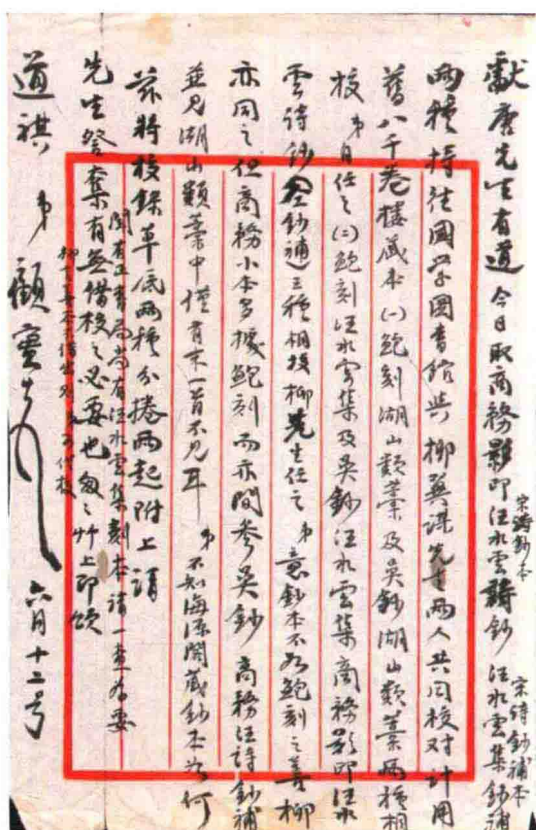 獻唐先生有道 今日取商務影印汪水雲詩鈔 宋詩鈔本 汪水雲集鈔補 宋詩鈔補本
兩種持往國學圖書館與柳翼謀先生兩人共同校對計用
舊八千卷樓藏本(一)鮑刻湖山類藁及吳鈔湖山類藁兩種相
校 弟自任之(二)鮑刻汪水雲集及吳鈔汪水雲集商務影印汪水
雲詩鈔 鈔補 三種相校柳先生任之 弟意鈔本不如鮑刻之善柳
亦同之但商務小本多據鮑刻而亦間參吳鈔 商務汪詩鈔補
並見湖山類藁中僅有末一首不見耳 弟不知海源閣藏鈔本如何
茲將校錄草底兩種分捲兩起附上請
聞有正書局尚有汪水雲集刻本請一查為要
先生詧奪有無借校之必要也匆匆艸上即頌
道祺 弟顧實 六月十二號